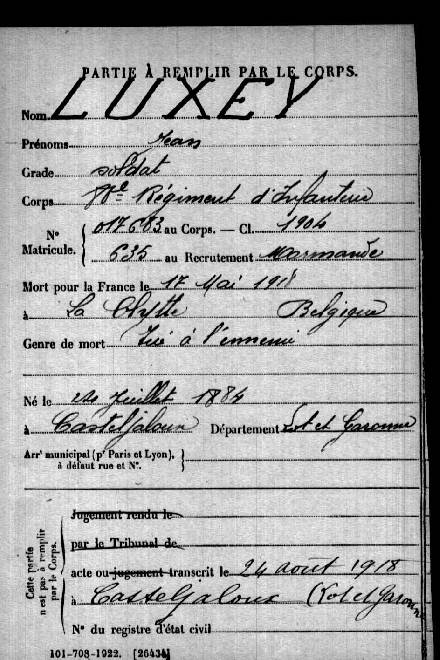 PARTIE À REMPLIR PAR LE CORPS.
Nom LUXEY
Prénoms Jean
Grade soldat
Corps Régiment d'Infanterie
N° Matricule. 017683 au Corps. — Cl. 1904
635 au Recrutement Marmande
Mort pour la France le 17 Mai 1918
à La Clytte Belgique
Genre de mort Tué à l'ennemi
Né le Juillet 1884
à Casteljaloux Département Lot et Garonne
Arr^t municipal (p^r Paris et Lyon), à défaut rue et N°.
Cette partie n'est pas à remplir par le Corps.
Jugement rendu le
par le Tribunal de
acte ou jugement transcrit le 24 aout 1918
à Casteljaloux (Lot et Garonne
N° du registre d'état civil
101-708-1922. [26434]